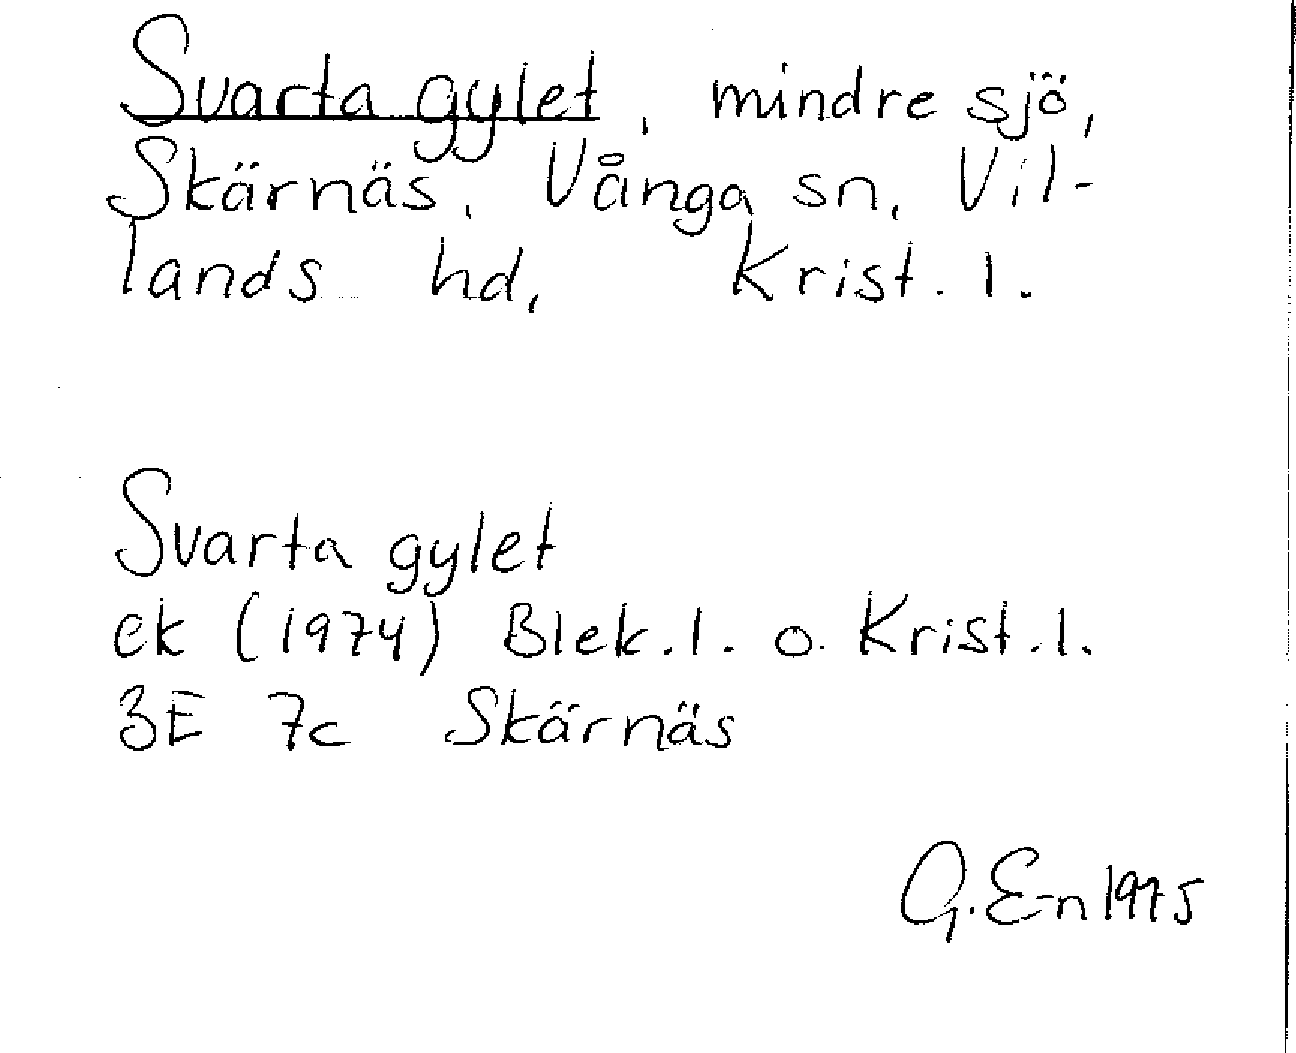 Svarta gylet, mindre sjö,
Skärnäs, Vånga sn, Vil-
lands hd, Krist. l.
Svarta gylet
ek (1974) Blek. l. o. Krist. l.
3E 7c Skärnäs
G. E-n 1975